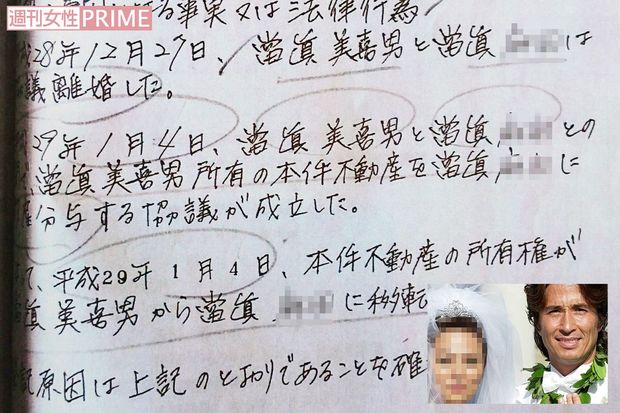 週刊女性PRIME
る事実又は法律行為
28年12月27日、當眞美喜男と當眞は
議離婚した。
29年1月4日、當眞美喜男と當眞との
當眞美喜男所有の本件不動産を當眞に
分与する協議が成立した。
、平成29年1月4日、本件不動産の所有権が
眞美喜男から當眞に移転
記原因は上記のとおりであることを確